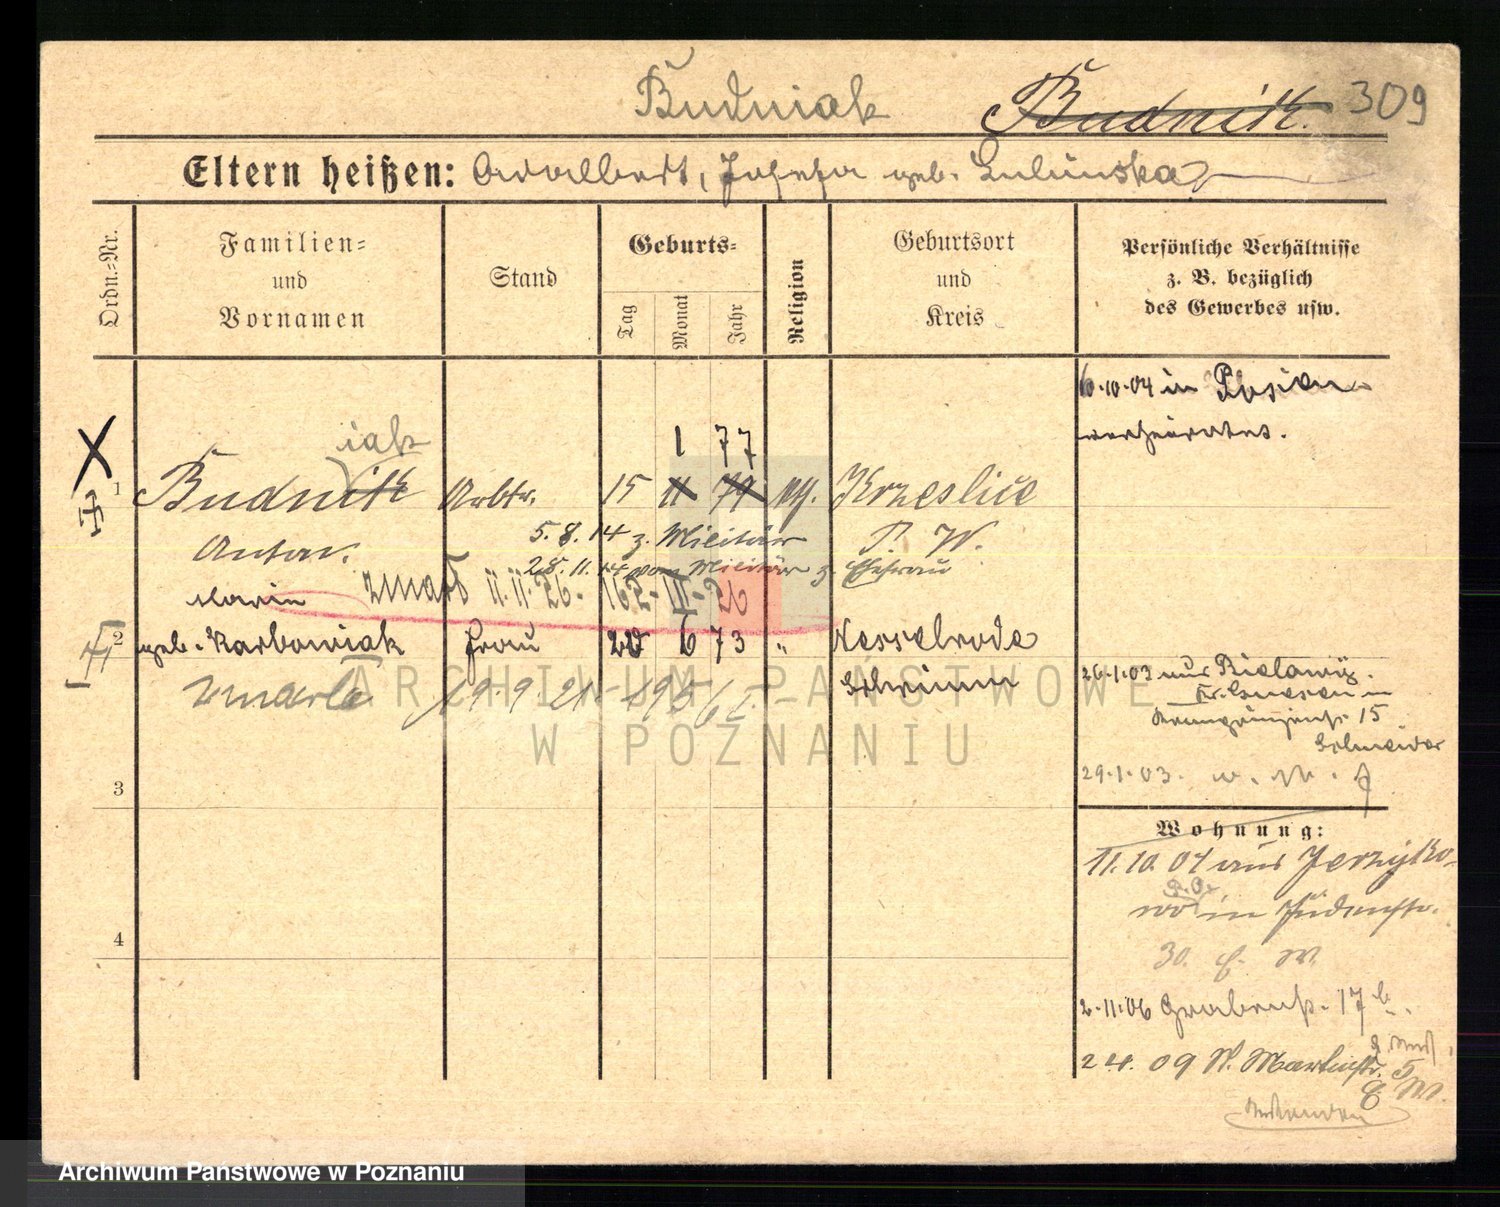 Budniak Budnik. 309
Eltern heißen: Adalbert, Josefa geb. Lulinska
Ordn.-Nr.
Familien-
und
Vornamen
Stand
Geburts-
Tag
Monat
Jahr
Religion
Geburtsort
und
Kreis
Persönliche Verhältnisse
z. B. bezüglich
des Gewerbes usw.
6.10.04 in Posen
verheiratet.
iak
1 77
1 Budnik Arbtr. 15 11 79 Krzeslice
Anton. 5.8.14 z. Militär P. W.
28.11.14 vom Militär z. Ehefrau
Marie zmarł 11.11.26. 162-III-26
2 geb. Karbowiak Frau 6 73 " Nesselrode
zmarła 19.9.21 Schrimm
26.1.03
15
Schneider
29.1.03.
3
Wohnung:
11.10.04 aus Jerzyko-
wo in Judenstr.
30.
4
2.11.06 Grabenst. 17 b.
24. 09 St. Martinstr. 5
ARCHIWUM PAŃSTWOWE
W POZNANIU
Archiwum Państwowe w Poznaniu